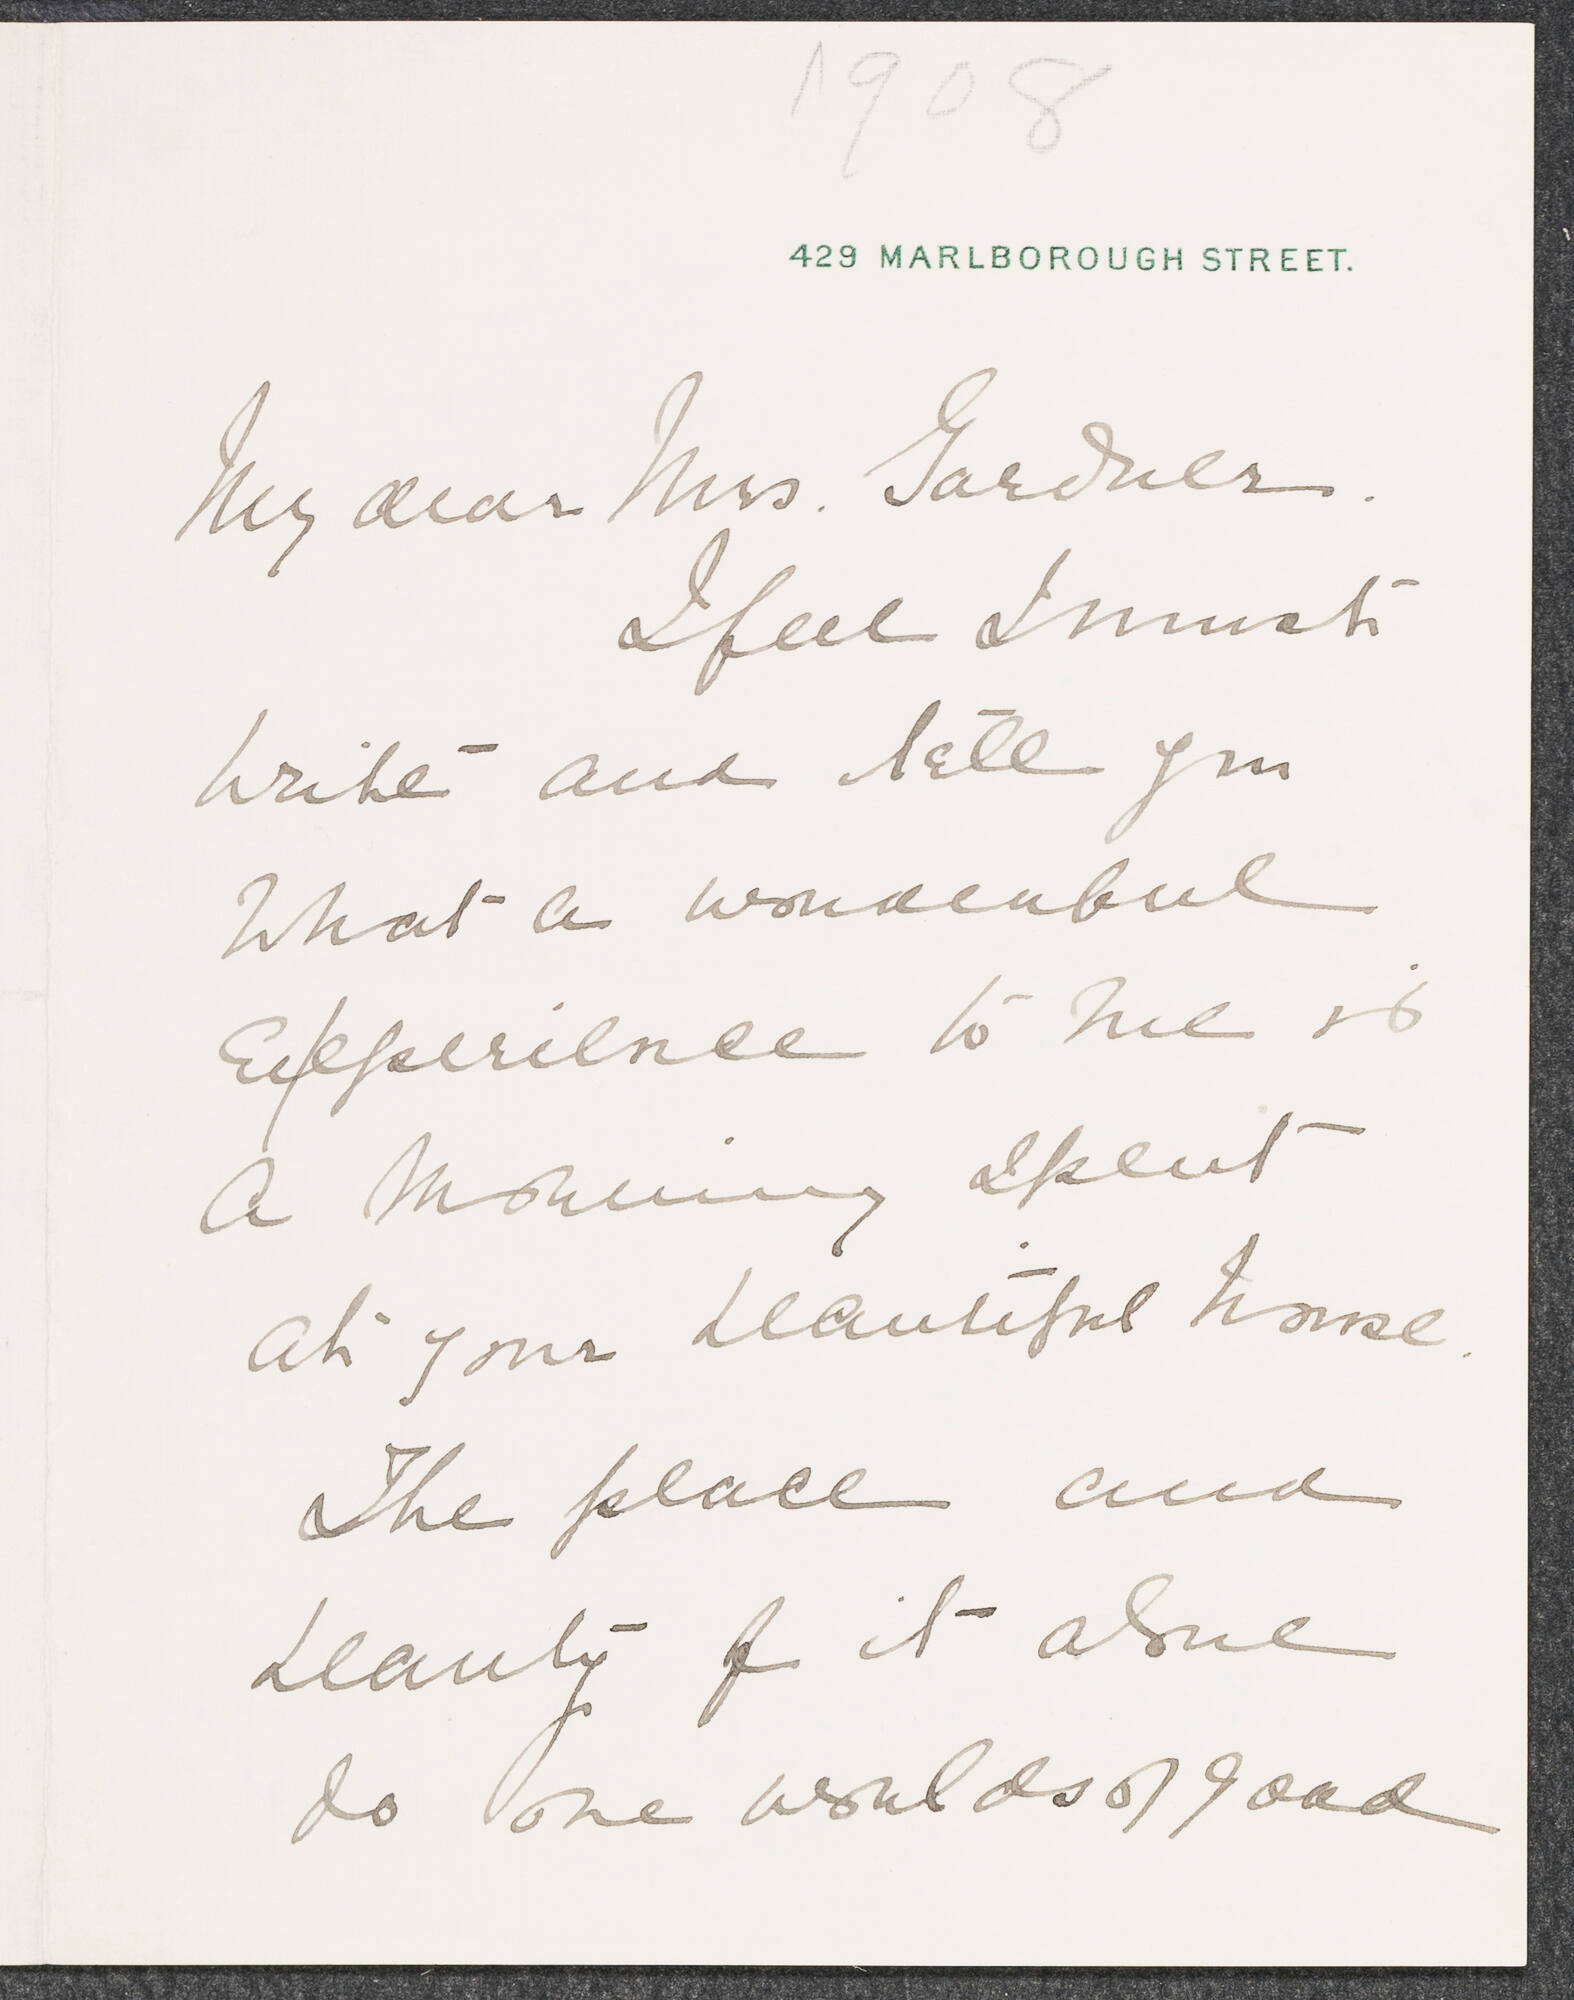 1908
429 MARLBOROUGH STREET.
My dear Mrs. Gardner.
I feel I must
write and tell you
What a wonderful
Experience to me is
a morning spent
at your beautiful house.
The place and
beauty of it alone
do one worlds of good